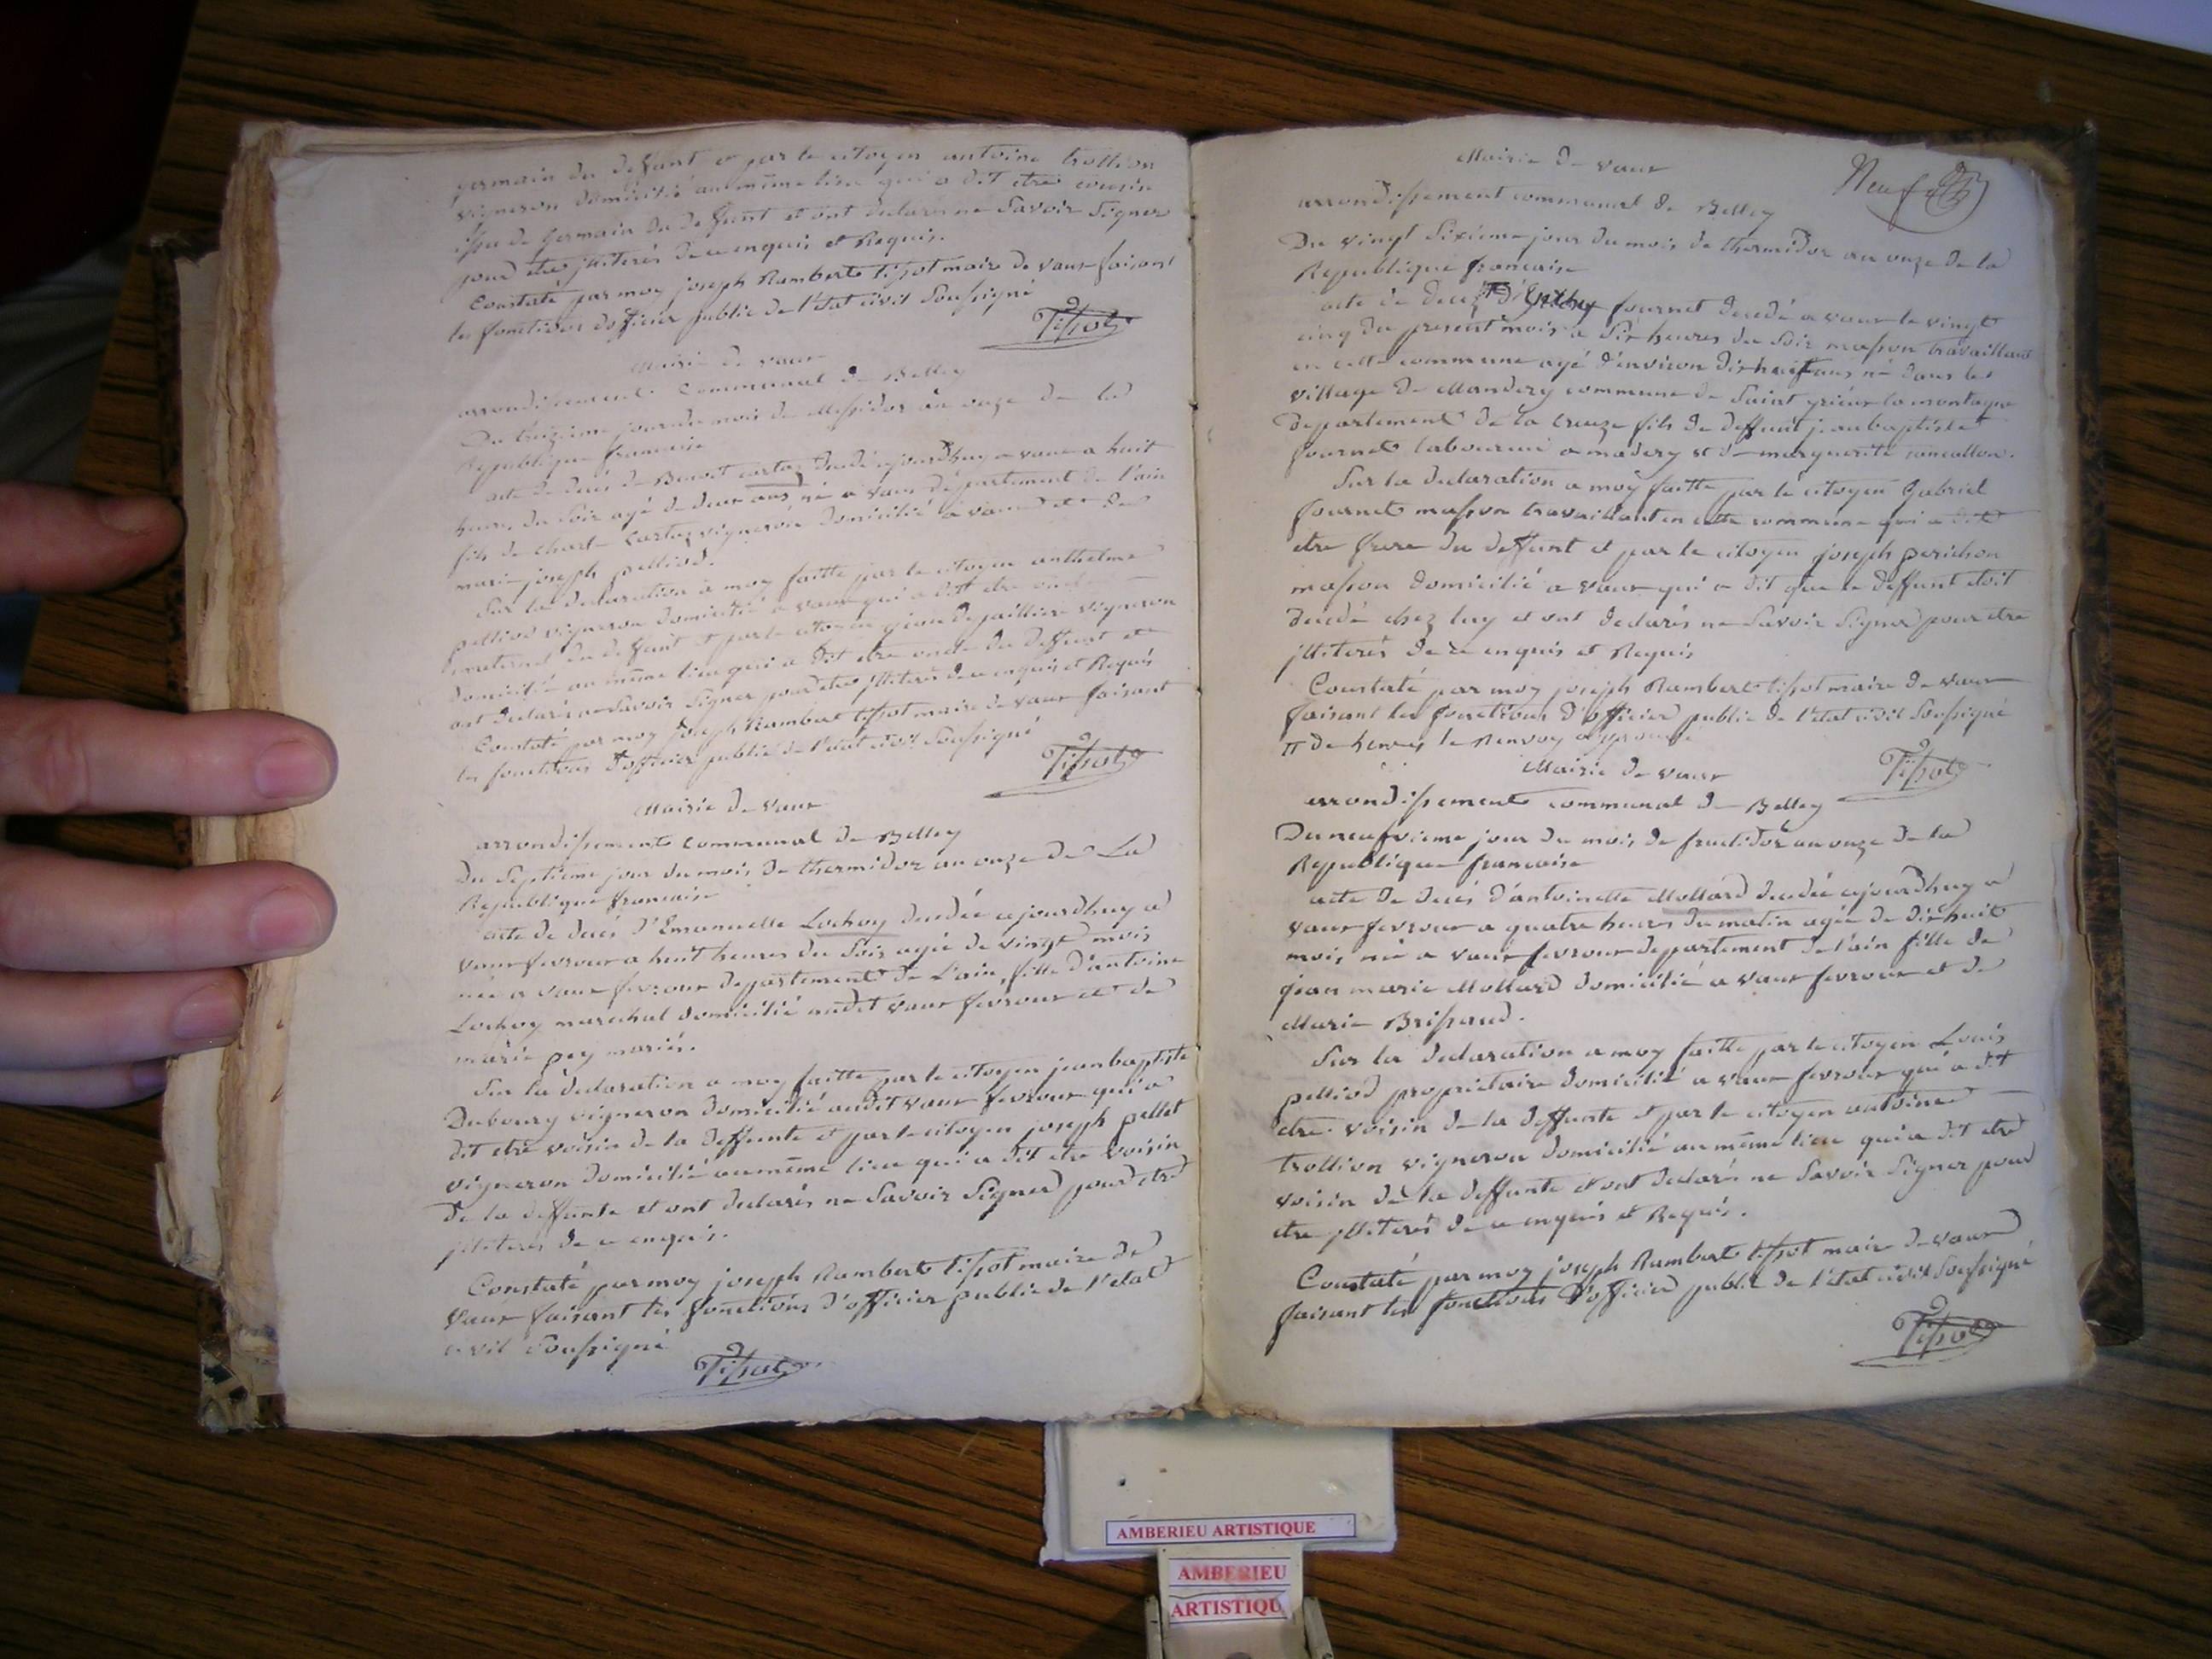 germain du deffunt et par le citoyen antoine trollion
vigneron domicilié au même lieu qui a dit etre cousin
issu de germain du deffunt et ont declarés ne Savoir Signer
pour etre jlliterés de ce enquis et Requis.
Constaté par moy joseph Rambert tissot maire de vaux faisant
les fonctions d'officier public de l'etat civil Soussigné
Tissot
Mairie de vaux
arrondissement Communal de Belley
Du treizieme jour du mois de Messidor an onze de la
Republique francaise
acte de decés de Benoit cartaz decedé ajourdhuy a vaux a huit
heures du Soir agé de deux ans né a vaux département de l'ain
fils de Charle Cartaz vigneron domicilié a vaux et de
marie joseph pelliod.
Sur la declaration à moy faitte par le citoyen anthelme
pelliod vigneron domicilié a vaux qui a dit etre oncle
maternel du deffunt et par le citoyen jaillier vigneron
domicilié au même lieu qui a dit etre oncle du deffunt et
ont declarés ne Savoir Signer pour etre jlliterés de ce enquis et Requis
Constaté par moy joseph Rambert tissot maire de vaux faisant
les fonctions d'officier public de l'etat civil Soussigné
Tissot
Mairie de Vaux
arrondissement Communal de Belley
Du Septieme jour du mois de thermidor an onze de La
Republique francaise
acte de decés d'Emanuelle Lochoy decedée ajourdhuy a
vaux fevroux a huit heures du Soir agée de vingt mois
née a vaux fevroux departement de L'ain, fille d'antoine
Lochoy marechal domicilié audit vaux fevroux et de
marie pey mariés.
Sur la declaration a moy faitte par le citoyen jean baptiste
Dubourg vigneron domicilié audit vaux fevroux qui a
dit etre voisin de la deffunte et par le citoyen joseph pellet
vigneron domicilié au même lieu qui a dit etre voisin
de la deffunte et ont declarés ne Savoir Signer pour etre
jlliterés de ce enquis.
Constaté par moy joseph Rambert tissot maire de
Vaux faisant les fonctions d'officier public de l'etat
civil Soussigné
Tissot
Mairie de vaux
Neuf
arrondissement communal de Belley
Du vingt Sixieme jour du mois de thermidor an onze de la
Republique francaise
acte de decez fournet decedé a vaux le vingt
cinq du present mois a Six heures du Soir masson travaillant
en cette commune agé d'environ dixhuit ans né dans le
village de Mandery commune de Saint yrieux la montagne
departement de la Creuze fils de deffunt jean baptiste
fournet laboureur a madery et de marguerite
Sur la declaration a moy faitte par le citoyen Gabriel
fournet masson travaillant en cette commune qui a dit
etre frere du deffunt et par le citoyen joseph perichon
masson domicilié a vaux qui a dit que le deffunt etoit
decedé chez luy et ont declarés ne Savoir Signer pour etre
jlliterés de ce enquis et Requis
Constaté par moy joseph Rambert tissot maire de vaux
faisant les fonctions d'officier public de l'etat civil Soussigné
le Renvoy approuvé
Tissot
Mairie de vaux
arrondissement communal de Belley
Du neufvieme jour du mois de fructidor an onze de la
Republique francaise
acte de decés d'antoinette Mollard decedée ajourdhuy a
vaux fevroux a quatre heures du matin agée de dixhuit
mois née a vaux fevroux departement de l'ain fille de
jean marie Mollard domicilié a vaux fevroux et de
Marie Brissaud.
Sur la declaration a moy faitte par le citoyen Louis
pelliod proprietaire domicilié a vaux fevroux qui a dit
etre voisin de la deffunte et par le citoyen antoine
trollion vigneron domicilié au même lieu qui a dit etre
voisin de la deffunte et ont declarés ne Savoir Signer pour
etre jlliterés de ce enquis et Requis.
Constaté par moy joseph Rambert tissot maire de vaux
faisant les fonctions d'officier public de l'etat civil Soussigné
Tissot
AMBERIEU ARTISTIQUE
AMBERIEU
ARTISTIQU